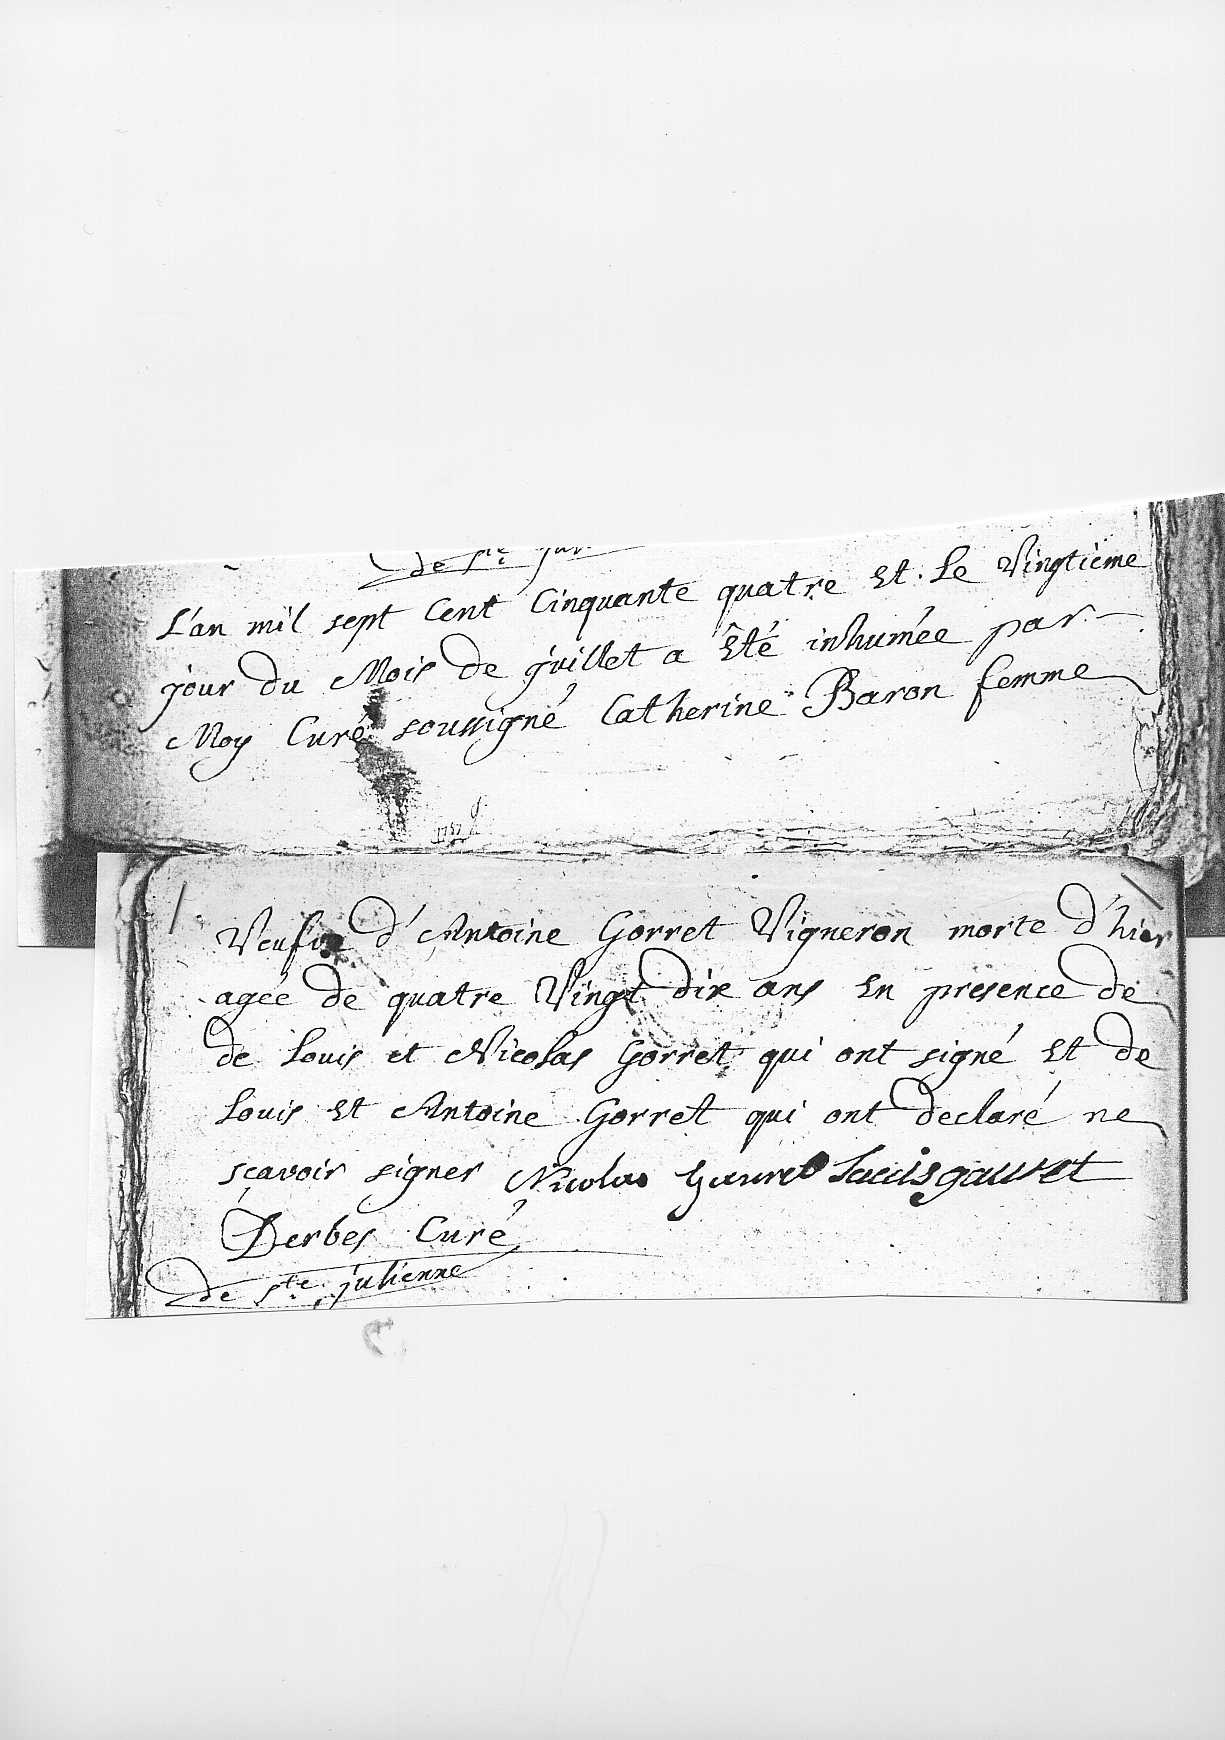 de Ste
L'an mil sept Cent Cinquante quatre Et. Le Vingtiéme
jour du Mois de juillet a Eté inhumée par
Moy Curé soussigné Catherine Baron femme
1757
Veufve d'Antoine Gorret Vigneron morte d'hier
agée de quatre Vingt dix ans En presence de
de Louis et Nicolas Gorret qui ont signé Et de
Louis Et Antoine Gorret qui ont declaré ne
sçavoir signer Nicolas Gauret Louis gauret
Derbes Curé
de Ste julienne